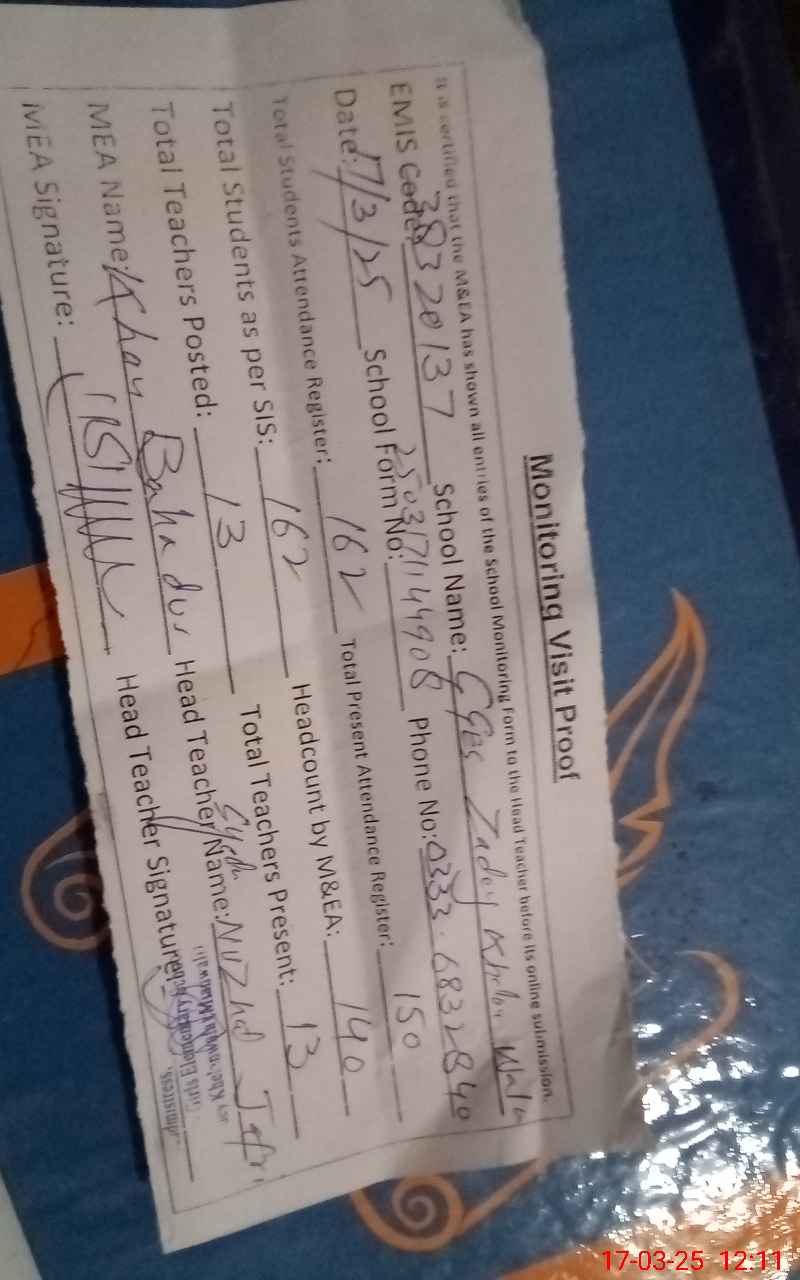 Monitoring Visit Proof
It is certified that the M&EA has shown all entries of the School Monitoring Form to the Head Teacher before its online submission.
EMIS Code: 38320137 School Name: GGES Wala
Date: 17/3/25 School Form No: 250317114908 Phone No: 0333-6832840
Total Students Attendance Register: 162 Total Present Attendance Register: 150
Total Students as per SIS: 162 Headcount by M&EA: 140
Total Teachers Posted: 13 Total Teachers Present: 13
MEA Name: Khan Bahadur Head Teacher Name: Syeda Nuzhat Jafri
MEA Signature: Head Teacher Signature:
Girls Elementary
17-03-25 12:11